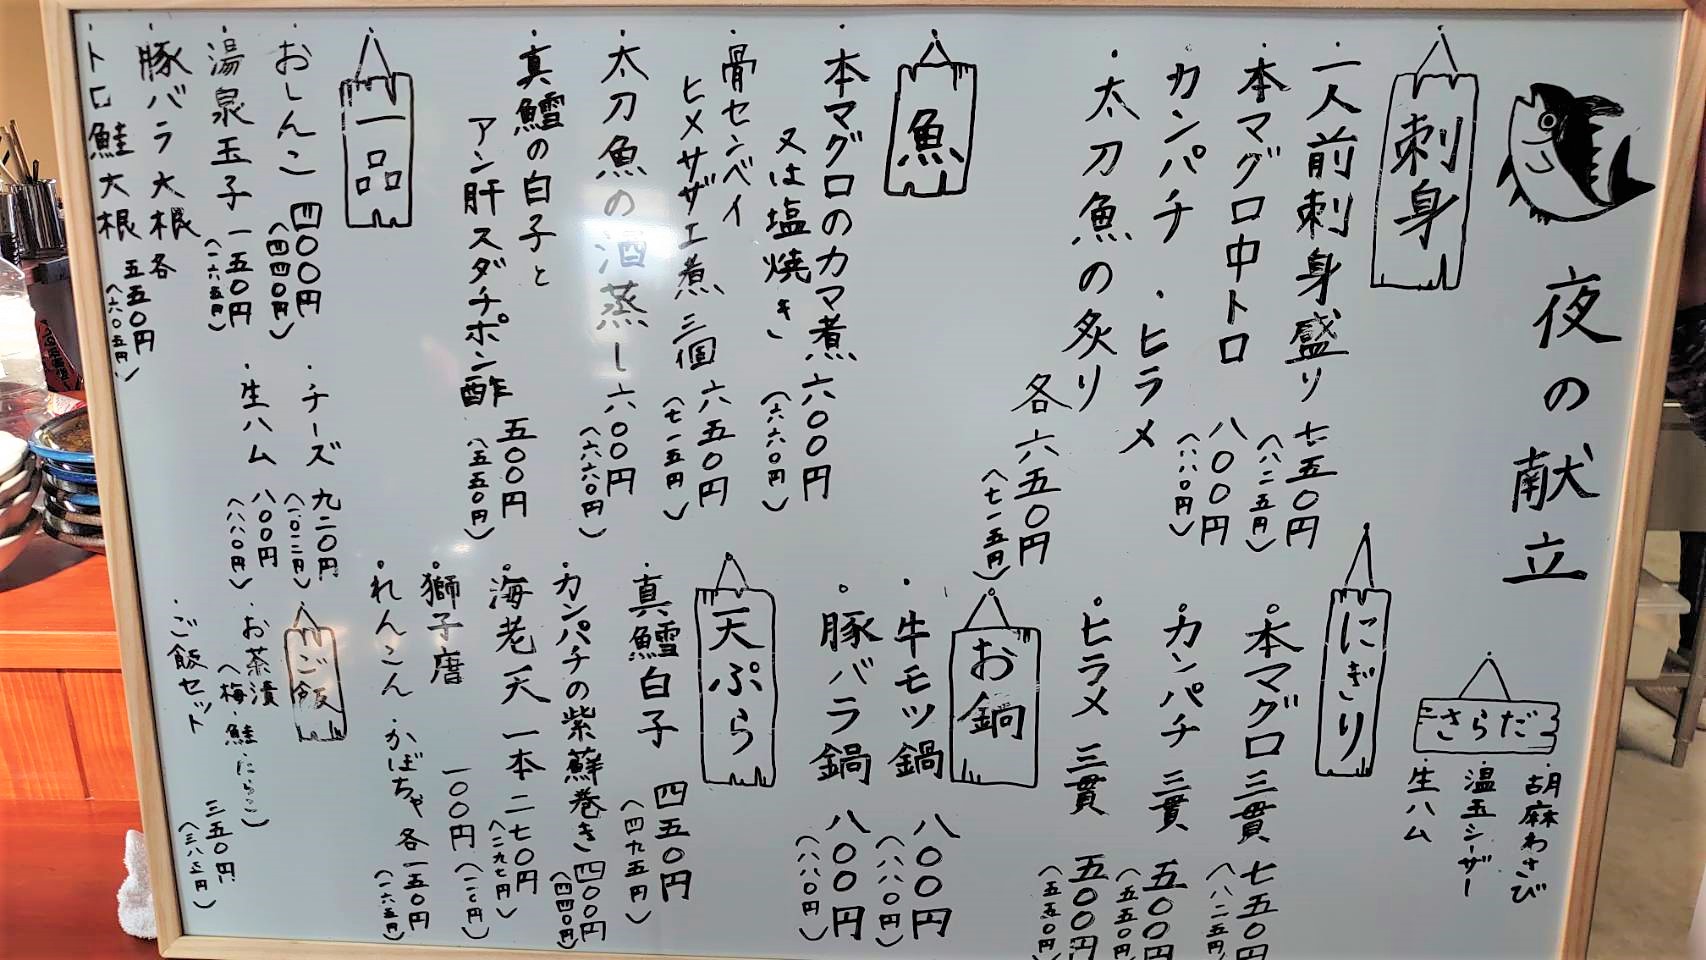 夜の献立
刺身
・一人前刺身盛り 七五〇円
(八二五円)
・本マグロ中トロ 八〇〇円
(八八〇円)
・カンパチ・ヒラメ
・太刀魚の炙り
各六五〇円
(七一五円)
さらだ
・胡麻わさび
・温玉シーザー
・生ハム
にぎり
・本マグロ三貫 七五〇円
(八二五円)
・カンパチ三貫 五〇〇円
(五五〇円)
・ヒラメ三貫 五〇〇円
(五五〇円)
魚
・本マグロのカマ煮
又は塩焼き 六〇〇円
(六六〇円)
・骨センベイ
ヒメサザエ煮三個 六五〇円
(七一五円)
・太刀魚の酒蒸し 六〇〇円
(六六〇円)
・真鱈の白子と
アン肝スダチポン酢 五〇〇円
(五五〇円)
お鍋
・牛モツ鍋 八〇〇円
(八八〇円)
・豚バラ鍋 八〇〇円
(八八〇円)
天ぷら
・真鱈白子 四五〇円
(四九五円)
・カンパチの紫蘇巻き 四〇〇円
(四四〇円)
・海老天一本 二七〇円
(二九七円)
・獅子唐 一〇〇円
(一一〇円)
・れんこん・かぼちゃ 各一五〇円
(一六五円)
一品
・おしんこ 四〇〇円
(四四〇円)
・湯泉玉子 一五〇円
(一六五円)
・豚バラ大根 各
・トロ鮭大根 五五〇円
(六〇五円)
・チーズ 九二〇円
(一〇一二円)
・生ハム 八〇〇円
(八八〇円)
ご飯
・お茶漬
(梅・鮭・たらこ)
・ご飯セット 三五〇円
(三八五円)